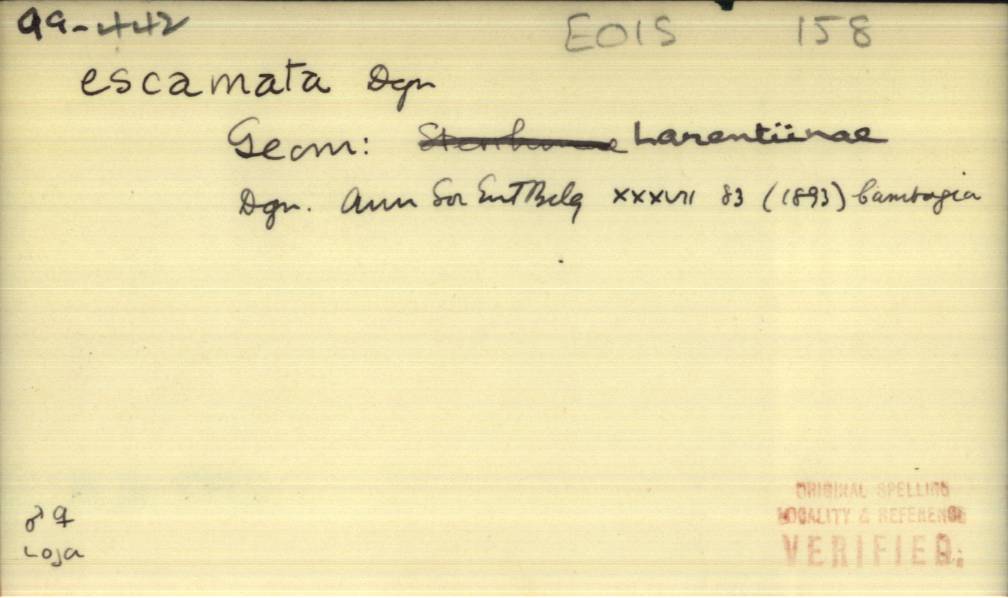 99-442
EOIS 158
escamata Dgn
Geom: Larentiinae
Dgn. Ann Soc Ent Belg XXXVII 83 (1893) Cambogia
♂ ♀
Loja
ORIGINAL SPELLING
LOCALITY & REFERENCE
VERIFIED.